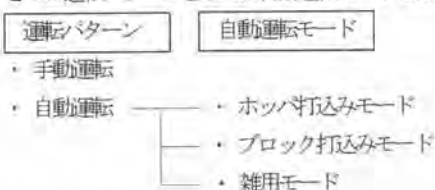 運転パターン 自動運転モード
・ 手動運転
・ 自動運転 ・ ホッパ打込みモード
・ ブロック打込みモード
・ 雑用モード